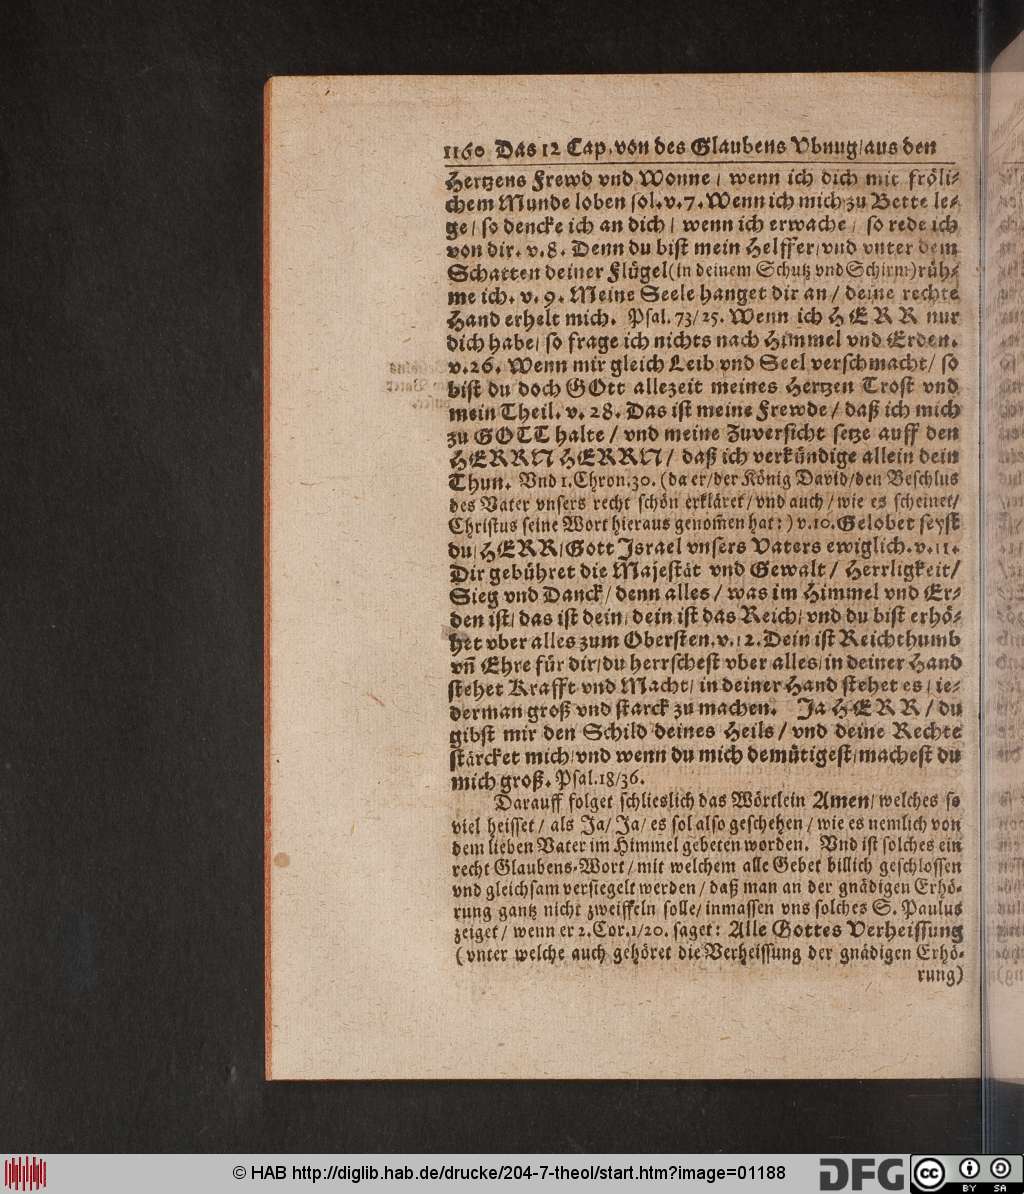 1160 Das 12 Cap. von des Glaubens Vbnug/aus den
Hertzens Frewd vnd Wonne / wenn ich dich mit fröli-
chem Munde loben sol. v. 7. Wenn ich mich zu Bette le-
ge / so dencke ich an dich / wenn ich erwache / so rede ich
von dir. v. 8. Denn du bist mein Helffer/vnd vnter dem
Schatten deiner Flügel(in deinem Schutz vnd Schirm)rüh-
me ich. v. 9. Meine Seele hanget dir an / deine rechte
Hand erhelt mich. Psal. 73/25. Wenn ich HERR nur
dich habe/ so frage ich nichts nach Himmel vnd Erden.
v. 26. Wenn mir gleich Leib vnd Seel verschmacht/ so
bist du doch GOtt allezeit meines Hertzen Trost vnd
mein Theil. v. 28. Das ist meine Frewde / daß ich mich
zu GOTT halte / vnd meine Zuversicht setze auff den
HERRN HERRN / daß ich verkündige allein dein
Thun. Vnd 1. Chron. 30. (da er/der König David/den Beschlus
des Vater vnsers recht schön erkläret / vnd auch / wie es scheinet/
Christus seine Wort hieraus genom̃en hat:) v. 10. Gelobet seyst
du/HERR/Gott Israel vnsers Vaters ewiglich. v. 11.
Dir gebühret die Majestät vnd Gewalt / Herrligkeit/
Sieg vnd Danck / denn alles / was im Himmel vnd Er-
den ist/ das ist dein/ dein ist das Reich/ vnd du bist erhö-
het vber alles zum Obersten. v. 12. Dein ist Reichthumb
vñ Ehre für dir/du herrschest vber alles/in deiner Hand
stehet Krafft vnd Macht/ in deiner Hand stehet es / ie-
derman groß vnd starck zu machen. Ja HERR / du
gibst mir den Schild deines Heils / vnd deine Rechte
stärcket mich/vnd wenn du mich demütigest/machest du
mich groß. Psal. 18/36.
Darauff folget schlieslich das Wörtlein Amen/ welches so
viel heisset / als Ja/ Ja/ es sol also geschehen / wie es nemlich von
dem lieben Vater im Himmel gebeten worden. Vnd ist solches ein
recht Glaubens-Wort / mit welchem alle Gebet billich geschlossen
vnd gleichsam versiegelt werden / daß man an der gnädigen Erhö-
rung gantz nicht zweiffeln solle/ inmassen vns solches S. Paulus
zeiget / wenn er 2. Cor. 1/20. saget: Alle Gottes Verheissung
(vnter welche auch gehöret die Verheissung der gnädigen Erhö-
rung)
© HAB http://diglib.hab.de/drucke/204-7-theol/start.htm?image=01188
DFG
cc BY SA